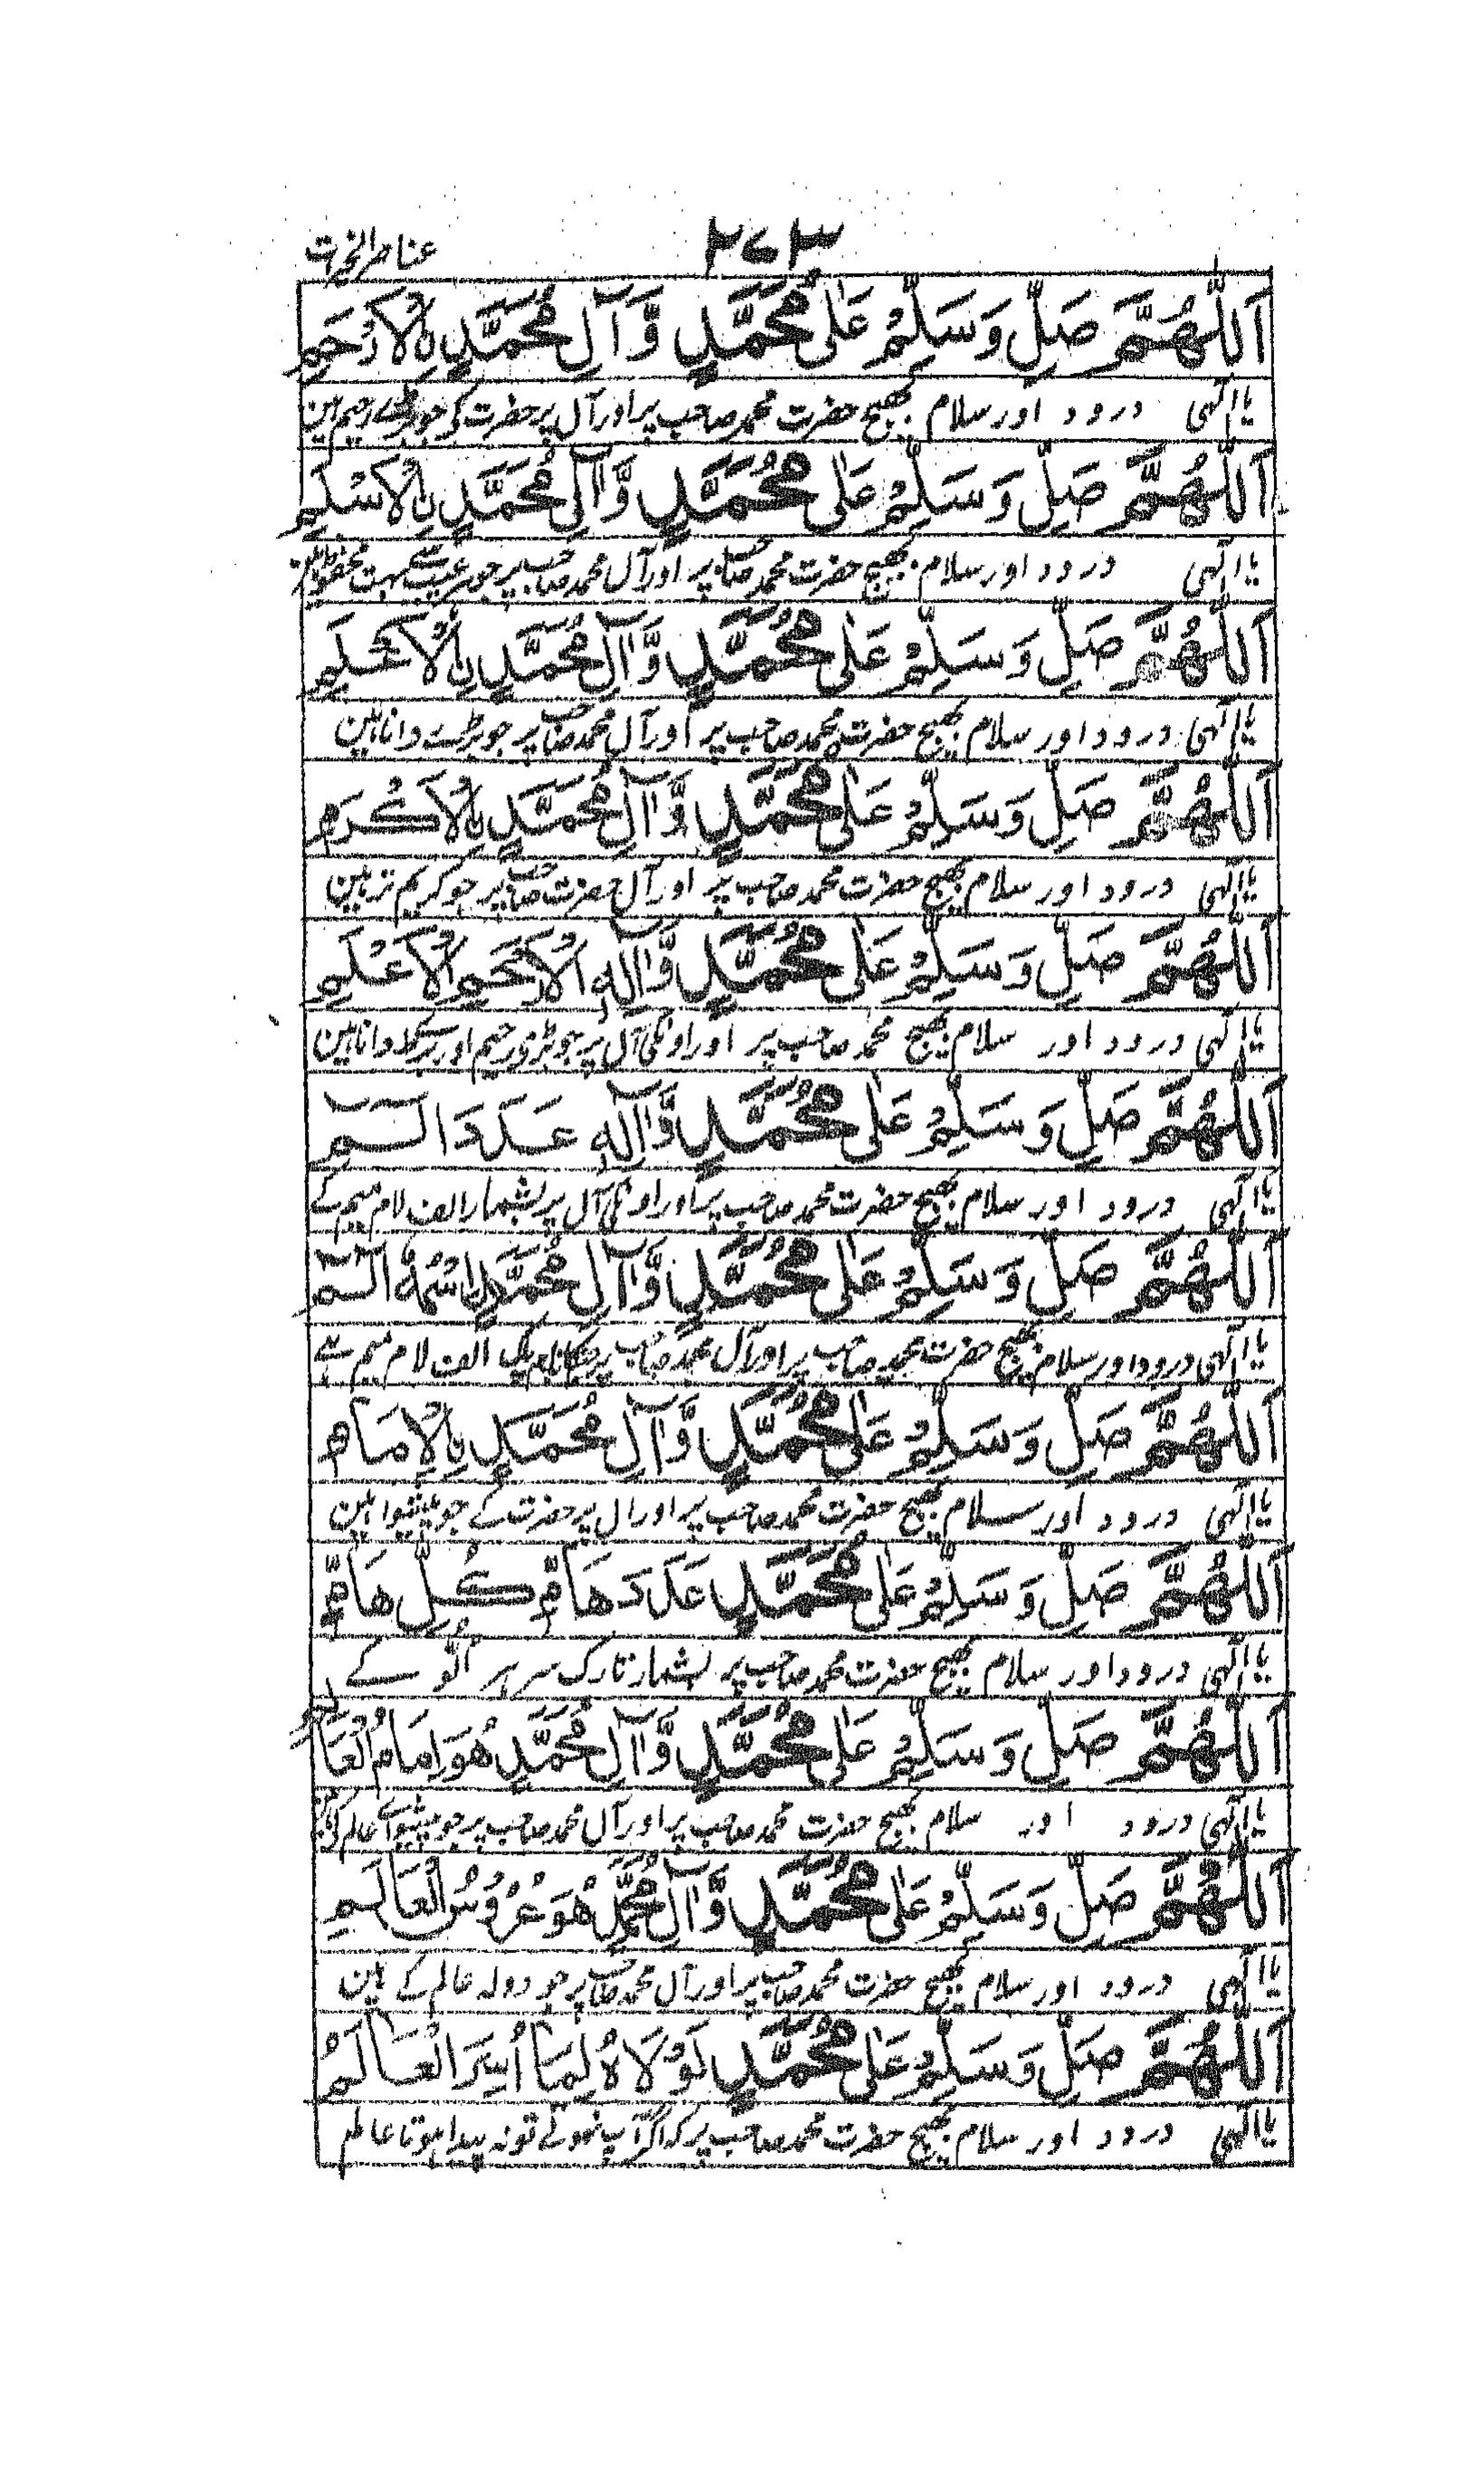 ۲۷۳ عناصر الخیرات
اَللّٰهُمَّ صَلِّ وَسَلِّمْ عَلٰی مُحَمَّدٍ وَّ آلِ مُحَمَّدٍ نِ الْاَرْحَمِ
یا الٰہی درود اور سلام بھیج حضرت محمد صاحب پر اور آل پر حضرت کی جو بڑے رحیم ہین
اَللّٰهُمَّ صَلِّ وَسَلِّمْ عَلٰی مُحَمَّدٍ وَّ اٰلِ مُحَمَّدٍ نِ الْاَسْلَمِ
یا الٰہی درود اور سلام بھیج حضرت محمد صاحب پر اور آل محمد صاحب پر جو ہر عیب سے بہت محفوظ
اَللّٰهُمَّ صَلِّ وَسَلِّمْ عَلٰی مُحَمَّدٍ وَّ اٰلِ مُحَمَّدٍ نِ الْاَعْلَمِ
یا الٰہی درود اور سلام بھیج حضرت محمد صاحب پر اور آل محمد صاحب پر جو بڑے دانا ہین
اَللّٰهُمَّ صَلِّ وَسَلِّمْ عَلٰی مُحَمَّدٍ وَّ اٰلِ مُحَمَّدٍ نِ الْاَكْرَمِ
یا الٰہی درود اور سلام بھیج حضرت محمد صاحب پر اور آل حضرت صاحب پر جو کریم تر ہین
اَللّٰهُمَّ صَلِّ وَسَلِّمْ عَلٰی مُحَمَّدٍ وَّ اٰلِهِ الْاَرْحَمِ الْاَعْلَمِ
یا الٰہی درود اور سلام بھیج محمد صاحب پر اور اونکی آل پر جو بڑی رحیم اور دانا ہین
اَللّٰهُمَّ صَلِّ وَسَلِّمْ عَلٰی مُحَمَّدٍ وَّ اٰلِهٖ عَدَدَ الٓمٓ
یا الٰہی درود اور سلام بھیج حضرت محمد صاحب پر اور اونکی آل پر بشمار الف لام میم کے
اَللّٰهُمَّ صَلِّ وَسَلِّمْ عَلٰی مُحَمَّدٍ وَّ اٰلِ مُحَمَّدٍ اسْمُهٗ الٓمٓ
یا الٰہی درود اور سلام بھیج حضرت محمد صاحب پر اور آل محمد صاحب پر جنکا نام پاک الف لام میم ہے
اَللّٰهُمَّ صَلِّ وَسَلِّمْ عَلٰی مُحَمَّدٍ وَّ اٰلِ مُحَمَّدٍ نِ الْاِمَامِ
یا الٰہی درود اور سلام بھیج حضرت محمد صاحب پر اور ال پر حضرت کے جو پیشوا ہین
اَللّٰهُمَّ صَلِّ وَسَلِّمْ عَلٰی مُحَمَّدٍ عَدَدَ هَامِّ كُلِّ هَامٍّ
یا الٰہی درود اور سلام بھیج حضرت محمد صاحب پر بشمار تارک سر ہر الّو کے
اَللّٰهُمَّ صَلِّ وَسَلِّمْ عَلٰی مُحَمَّدٍ وَّ اٰلِ مُحَمَّدٍ هُوَ اِمَامُ الْعَالَمِ
یا الٰہی درود اور سلام بھیج حضرت محمد صاحب پر اور آل محمد صاحب پر جو پیشوائے عالم کے ہین
اَللّٰهُمَّ صَلِّ وَسَلِّمْ عَلٰی مُحَمَّدٍ وَّ اٰلِ مُحَمَّدٍ هُوَ عُرُوْسُ الْعَالَمِ
یا الٰہی درود اور سلام بھیج حضرت محمد صاحب پر اور آل محمد صاحب پر جو دولہ عالم کے ہین
اَللّٰهُمَّ صَلِّ وَسَلِّمْ عَلٰی مُحَمَّدٍ لَوْ لَاهُ لَمَا اُبْرِءَ الْعَالَمُ
یا الٰہی درود اور سلام بھیج حضرت محمد صاحب پر کہ اگر آپ نہوتے تو نہ پیدا ہوتا عالم